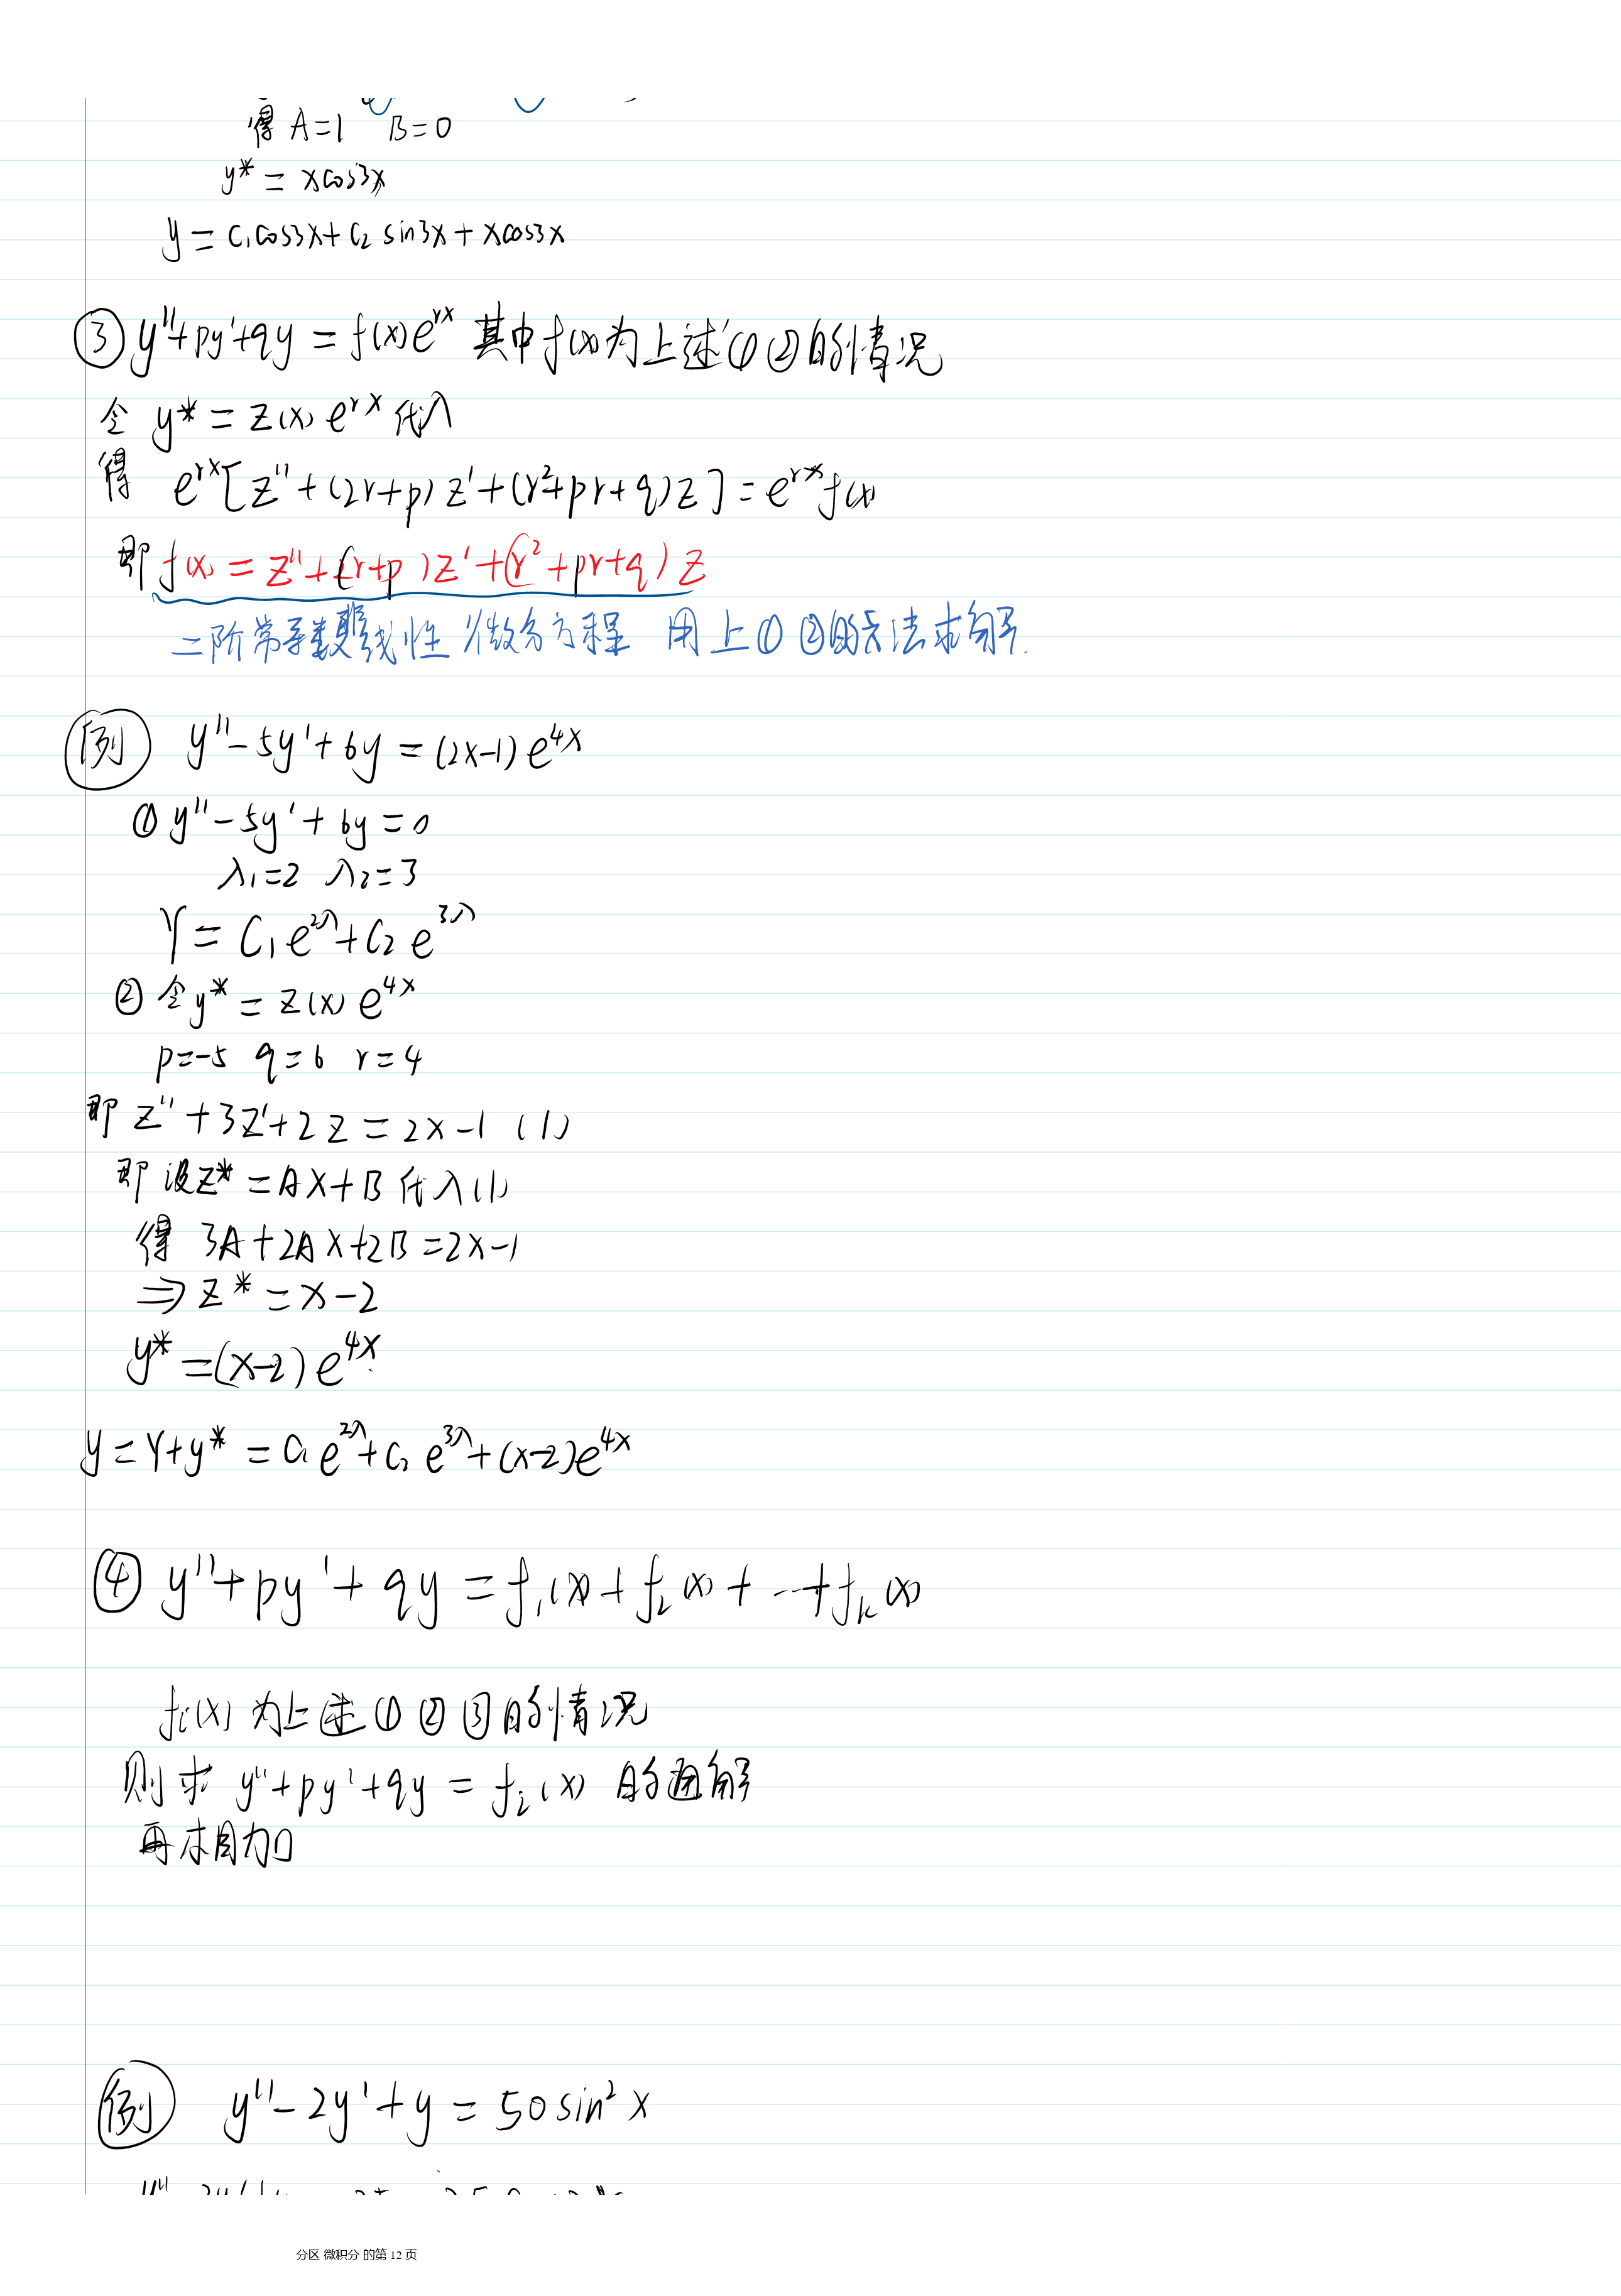 得 A=1 B=0
y* = xcos3x
y = C₁cos3x+C₂ sin3x+xcos3x
③ y''+py'+qy = f(x)e^{rx} 其中f(x)为上述①②的情况
令 y* = z(x) e^{rx} 代入
得 e^{rx}[z''+(2r+p)z'+(r²+pr+q)z] = e^{rx}f(x)
即 f(x) = z''+(r+p)z'+(r²+pr+q)z
二阶常系数非线性微分方程 用上①②的方法求解.
例 y''-5y'+6y = (2x-1)e^{4x}
① y''-5y'+6y = 0
λ₁=2 λ₂=3
Y = C₁e^{2λ}+C₂e^{3λ}
② 令 y* = z(x) e^{4x}
p=-5 q=6 r=4
即 z''+3z'+2z = 2x-1 (1)
即 设z* = Ax+B 代入(1)
得 3A+2Ax+2B = 2x-1
⇒ z* = x-2
y* = (x-2)e^{4x}
y = Y+y* = C₁e^{2λ}+C₂e^{3λ}+(x-2)e^{4x}
④ y''+py'+qy = f₁(x)+f₂(x)+…+fₖ(x)
fᵢ(x) 为上述①②③的情况
则求 y''+py'+qy = fᵢ(x) 的通解
再相加
例 y''-2y'+y = 50sin²x
分区 微积分 的第 12 页